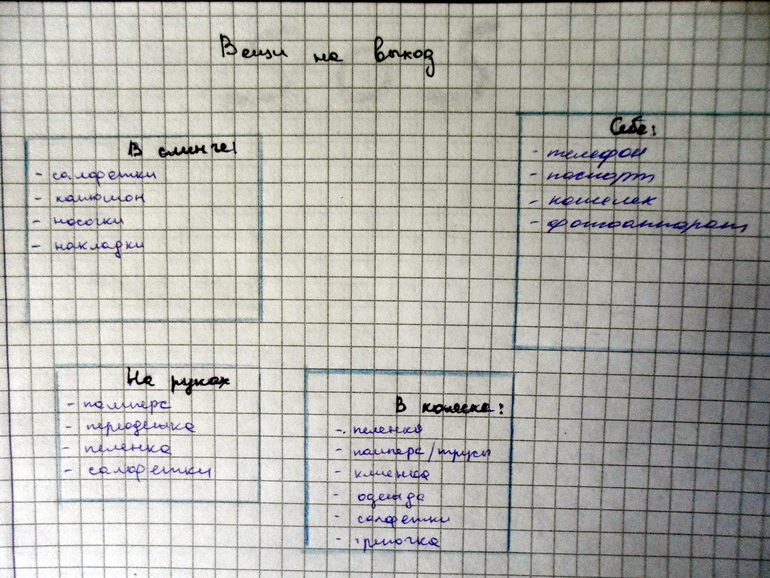 Вещи на выход
В слинге:
- салфетки
- капюшон
- носочки
- накладки
Себе:
- телефон
- паспорт
- кошелек
- фотоаппарат
На руках
- памперс
- переодежка
- пеленка
- салфетки
В коляске:
- пеленка
- памперс/трусы
- клеенка
- одежда
- салфетки